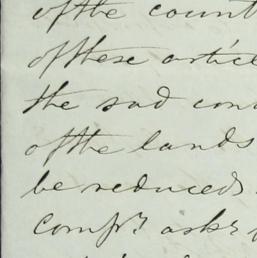 of the count
of these article
the sad con
of the lands
be reduced
compr asks